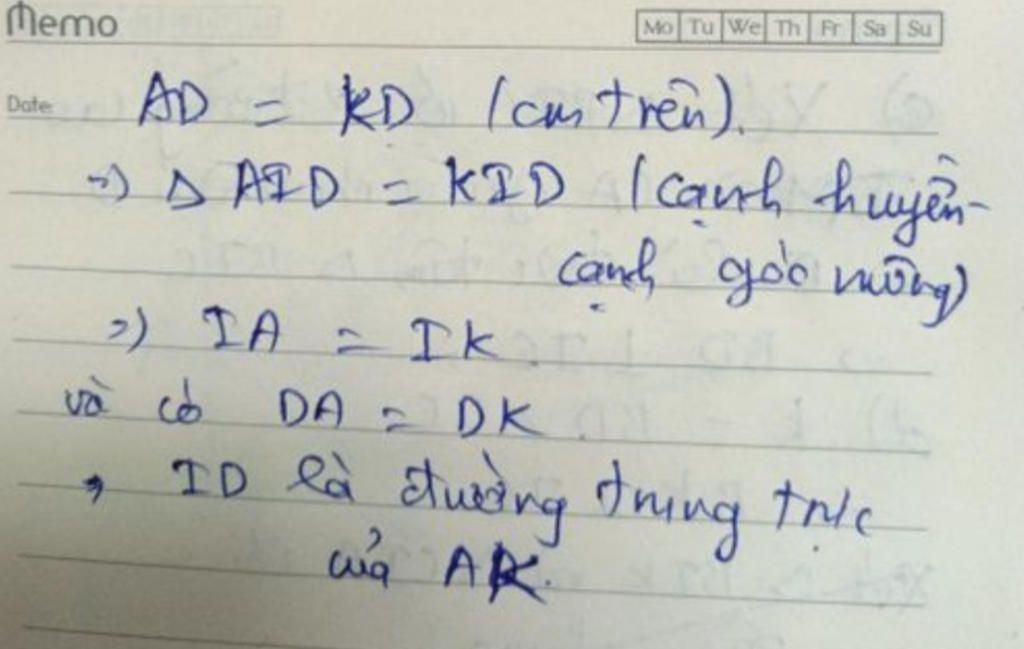 Memo
Mo Tu We Th Fr Sa Su
Date
AD = KD (cm trên).
=> Δ AID = KID (cạnh huyền-
cạnh góc vuông)
=> IA = IK
và có DA = DK
→ ID là đường trung trực
của AK.